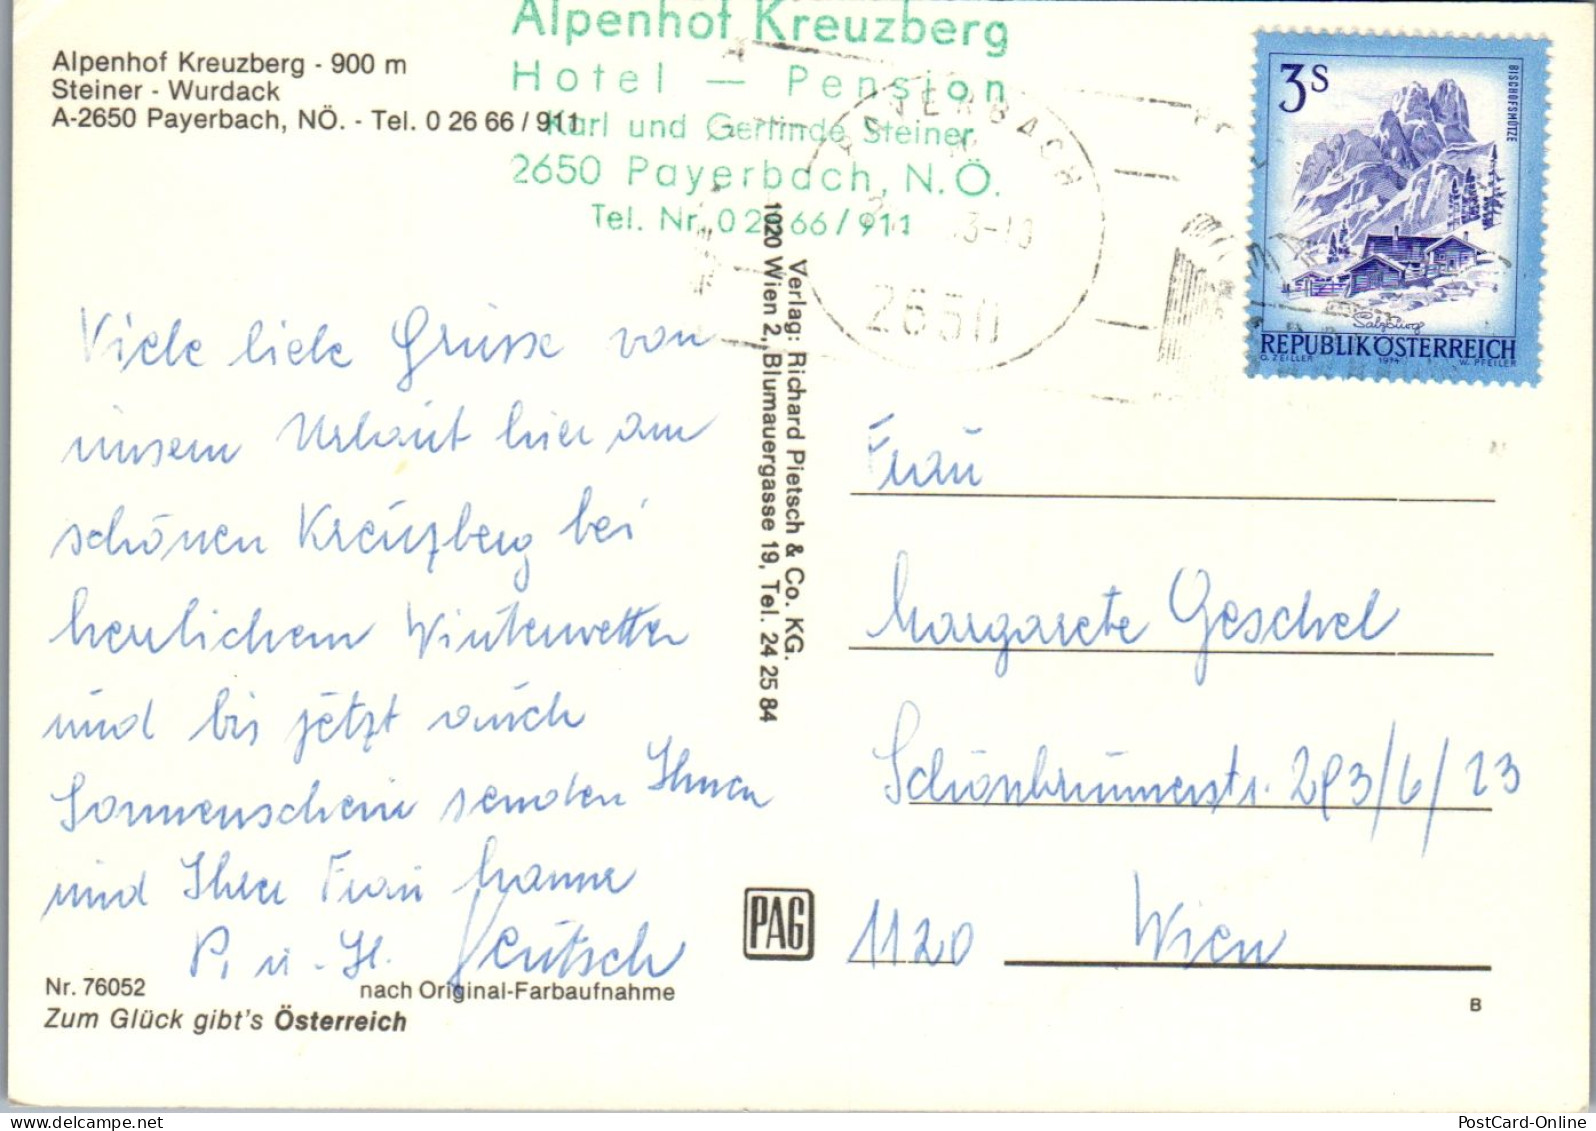 Alpenhof Kreuzberg - 900 m
Steiner - Wurdack
A-2650 Payerbach, NÖ. - Tel. 0 26 66 / 911
Alpenhof Kreuzberg
Hotel — Pension
Karl und Gerlinde Steiner
2650 Payerbach, N.Ö.
Tel. Nr. 0 26 66/911
PAYERBACH
2650
3 S
BISCHOFSMÜTZE
Salzburg
REPUBLIK ÖSTERREICH
O. ZEILLER 1974 W. PFEILER
Viele liebe Grüsse von
unserm Urlaub hier am
schönen Kreuzberg bei
herrlichem Winterwetter
und bis jetzt auch
Sonnenschein senden Ihnen
und Ihrer Frau Hanne
P. u. H.
Verlag: Richard Pietsch & Co. KG.
1020 Wien 2, Blumauergasse 19, Tel. 24 25 84
Frau
Margarete Geschel
Schönbrunnerstr. 293/6/23
1120 Wien
PAG
Nr. 76052 nach Original-Farbaufnahme
Zum Glück gibt's Österreich
B
PostCard-Online